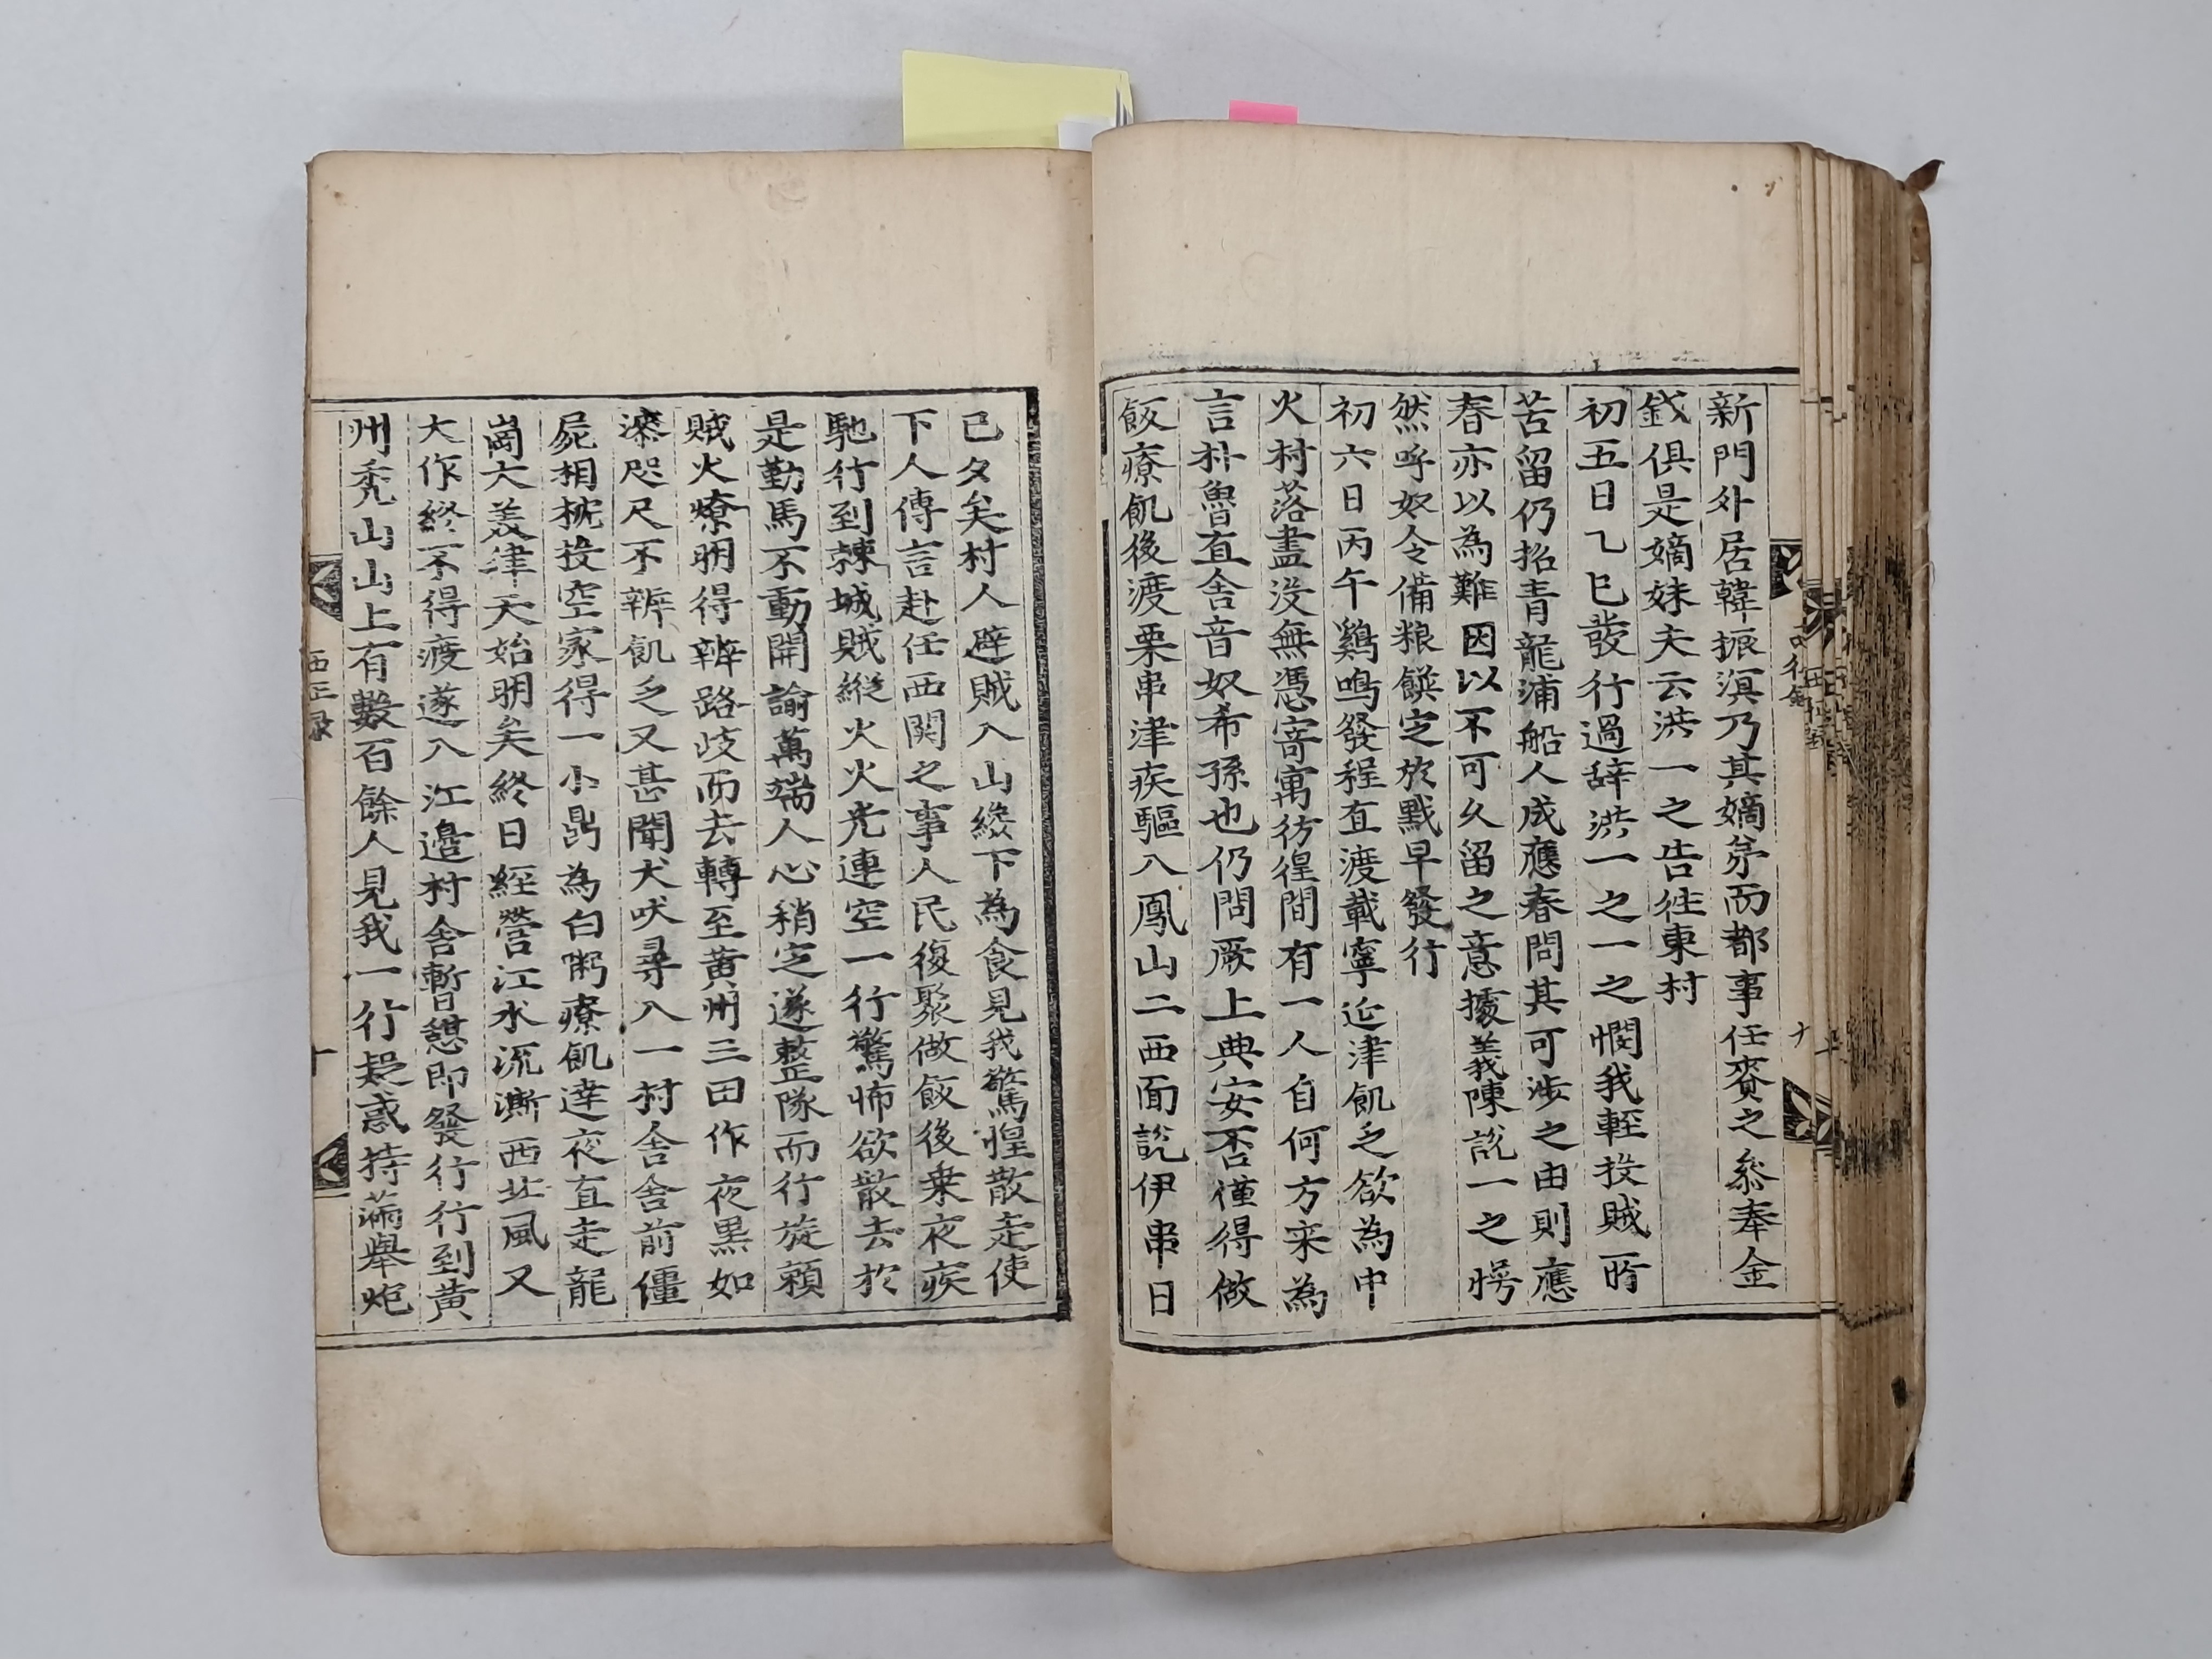 新門外居韓振溟乃其嫡弟而都事任賚之叅奉金
鉞俱是嫡妹夫云洪一之告徃東村
初五日乙巳發行過辞洪一之一之憫我輕投賊所
苦留仍招青龍浦船人成應春問其可涉之由則應
春亦以為難因以不可久留之意據義陳說一之愕
然呼奴令備粮饌定於戥早發行
初六日丙午鷄鳴發程直渡載寧近津飢乏欲為中
火村落盡沒無憑寄寓彷徨間有一人自何方来為
言朴魯直舍音奴希孫也仍問厥上典安否僅得做
飯療飢後渡栗串津疾驅入鳳山二西面說伊串日
已夕矣村人避賊入山纔下為食見我驚惶散走使
下人傳言赴任西関之事人民復聚做飯後乗夜疾
馳行到棘城賊縱火火光連空一行驚怖欲散去於
是勤馬不動開諭萬端人心稍定遂整隊而行旋頼
賊火燎明得辨路歧而去轉至黄州三田作夜黑如
漆咫尺不辨飢乏又甚聞犬吠尋入一村舍舍前僵
屍相枕投空家得一小鼎為白粥療飢達夜直走龍
崗大羙津天始明矣終日經營江水流澌西北風又
大作終不得渡遂入江邉村舍暫憇即發行行到黄
州禿山山上有數百餘人見我一行疑惑持滿舉炮
西正录
十